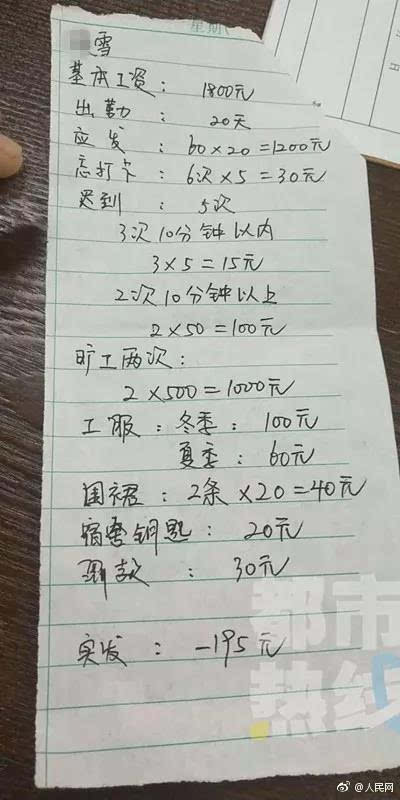 星期
雪
基本工资: 1800元
出勤: 20天
应发: 60×20=1200元
忘打卡: 6次×5=30元
迟到: 5次
3次10分钟以内
3×5=15元
2次10分钟以上
2×50=100元
旷工两次:
2×500=1000元
工服: 冬季: 100元
夏季: 60元
围裙: 2条×20=40元
宿舍钥匙: 20元
罚款: 30元
实发: -195元
都市
热线
@人民网